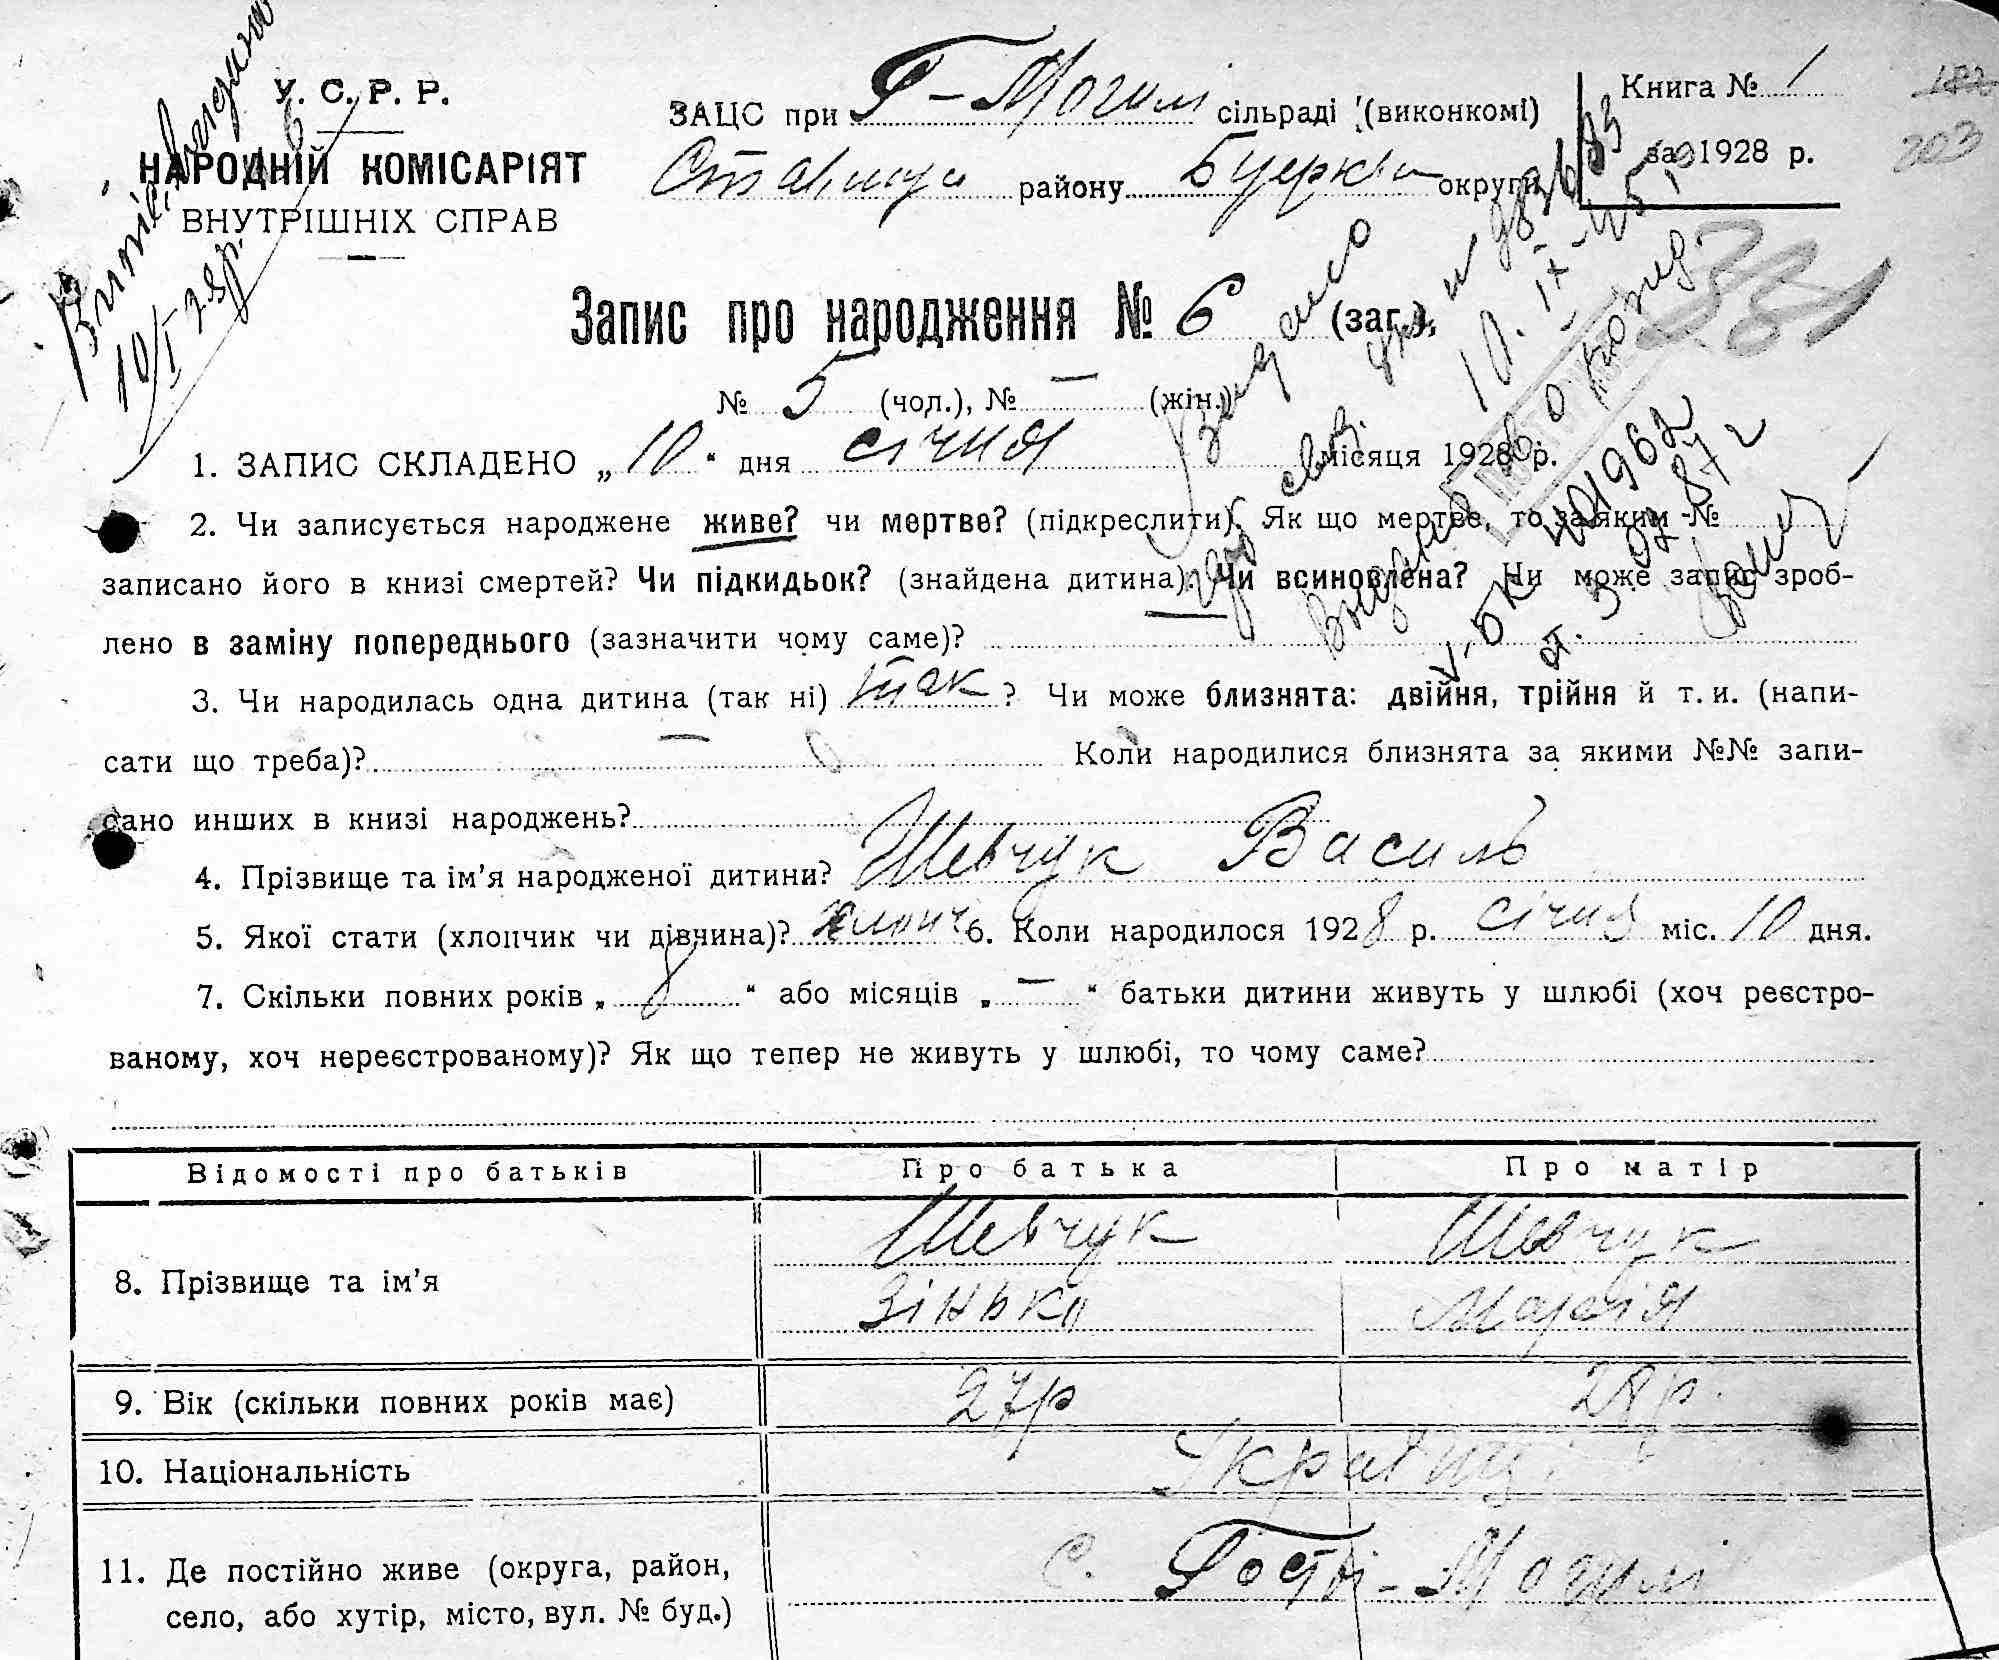 У. С. Р. Р.
НАРОДНІЙ КОМІСАРІЯТ
ВНУТРІШНІХ СПРАВ
ЗАЦС при Г-Могилі сільраді (виконкомі)
району округи
Книга № 1
за 1928 р.
182
203
10/I 28р.
Запис про народження № 6 (заг.),
№ 5 (чол.), № — (жін.)
381
1. ЗАПИС СКЛАДЕНО „ 10 “ дня січня місяця 1928 р.
2. Чи записується народжене живе? чи мертве? (підкреслити). Як що мертве, то за яким №
записано його в книзі смертей? Чи підкидьок? (знайдена дитина). Чи всиновлена? Чи може запис зроб-
лено в заміну попереднього (зазначити чому саме)?
Видано
10. IX-45
401962
3. Чи народилась одна дитина (так ні) так ? Чи може близнята: двійня, трійня й т. и. (напи-
сати що треба)? — Коли народилися близнята за якими №№ запи-
сано инших в книзі народжень?
4. Прізвище та ім’я народженої дитини? Шевчук Василь
5. Якої стати (хлопчик чи дівчина)? хлопч 6. Коли народилося 1928 р. січня міс. 10 дня.
7. Скільки повних років „ 8 “ або місяців „ — “ батьки дитини живуть у шлюбі (хоч реєстро-
ваному, хоч нереєстрованому)? Як що тепер не живуть у шлюбі, то чому саме?
Відомості про батьків Про батька Про матір
8. Прізвище та ім’я Шевчук Зінько Шевчук Марія
9. Вік (скільки повних років має) 27р 28р.
10. Національність Українці
11. Де постійно живе (округа, район,
село, або хутір, місто, вул. № буд.) С. Гострі-Могилі